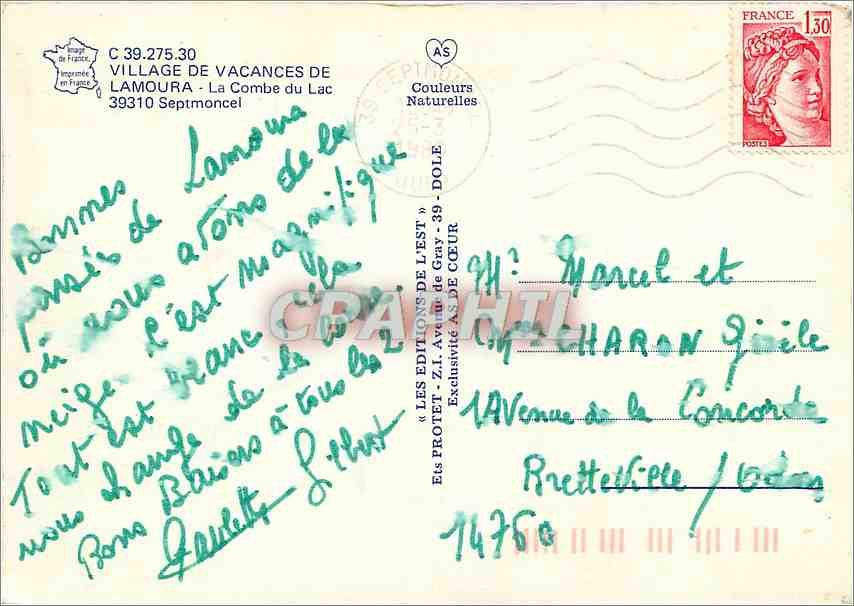 Image
de France,
Imprimée
en France
C 39.275.30
VILLAGE DE VACANCES DE
LAMOURA - La Combe du Lac
39310 Septmoncel
AS
Couleurs
Naturelles
FRANCE
1,30
POSTES
39 SEPTMONCEL
JURA
Bonnes
passés de Lamoura
où nous avons de la
neige c'est magnifique
Tout est blanc cela
nous change de la
Bons Baisers à tous les 2
Paulette Gilbert
« LES EDITIONS DE L'EST »
Ets PROTET - Z.I. Avenue de Gray - 39 - DOLE
Exclusivité AS DE CŒUR
CPAPHIL
Mr Marcel et
Mme CHARON Gisèle
1 Avenue de la Concorde
Bretteville / Odon
14760